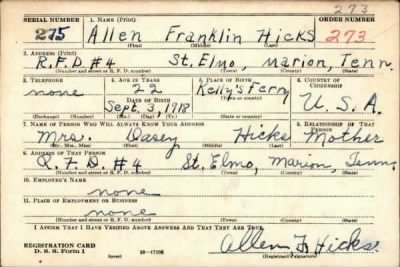 273
SERIAL NUMBER 1. NAME (Print) ORDER NUMBER
275 Allen Franklin Hicks 273
(First) (Middle) (Last)
2. ADDRESS (Print)
R.F.D. #4 St. Elmo, Marion, Tenn.
(Number and street or R. F. D. number) (Town) (County) (State)
3. TELEPHONE 4. AGE IN YEARS 5. PLACE OF BIRTH 6. COUNTRY OF CITIZENSHIP
none 22 Kelly's Ferry
DATE OF BIRTH
Sept. 3, 1918 U.S.A.
(Mo.) (Day) (Yr.)
7. NAME OF PERSON WHO WILL ALWAYS KNOW YOUR ADDRESS 8. RELATIONSHIP OF THAT PERSON
Mrs. Hicks Mother
(Mr., Mrs., Miss) (First) (Middle) (Last)
9. ADDRESS OF THAT PERSON
R.F.D. #4 St. Elmo, Marion, Tenn.
(Number and street or R. F. D. number) (Town) (County) (State)
10. EMPLOYER'S NAME
none
11. PLACE OF EMPLOYMENT OR BUSINESS
none
(Number and street or R. F. D. number) (Town) (County) (State)
I AFFIRM THAT I HAVE VERIFIED ABOVE ANSWERS AND THAT THEY ARE TRUE.
REGISTRATION CARD
D. S. S. Form 1 (over) (Registrant's signature)
Allen F. Hicks